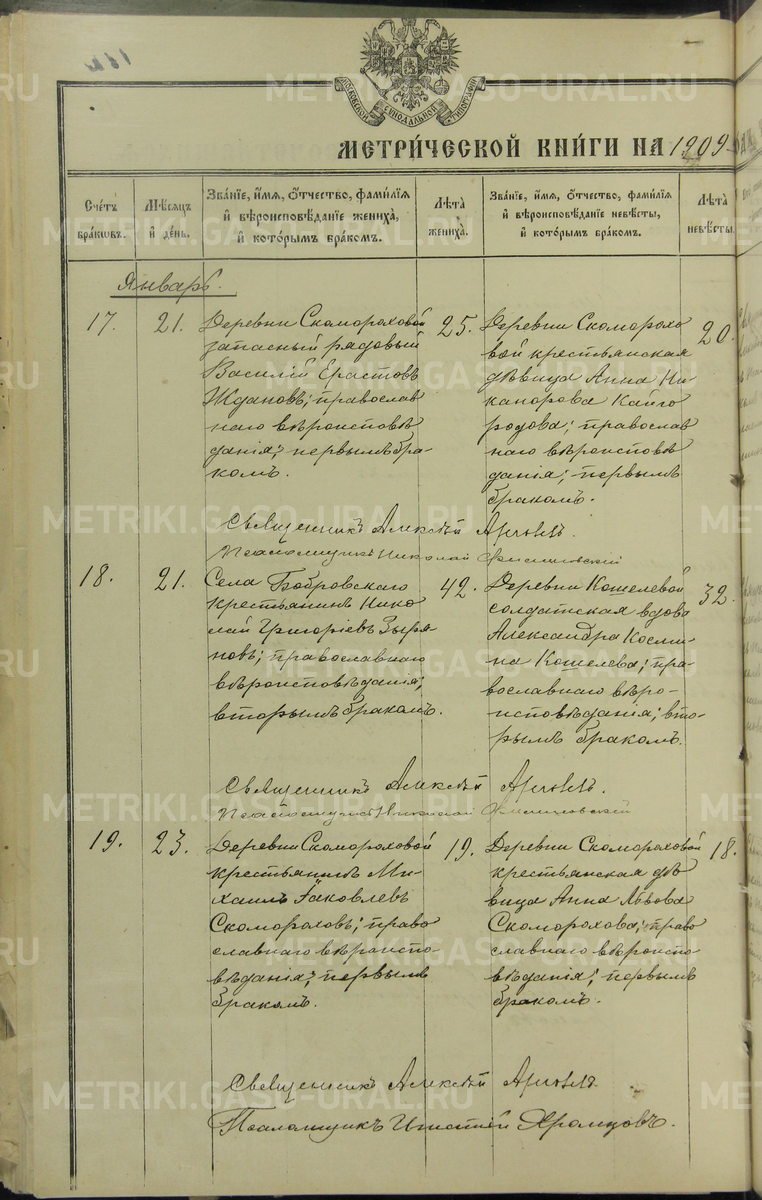 МОСКОВСКОЙ СѴНОДАЛЬНОЙ ТИПОГРАФІИ
МЕТРИ́ЧЕСКОЙ КНИ́ГИ НА 1909
Сче́тъ бра́кωвъ.
Мѣ́сѧцъ и҆ де́нь.
Зва́нїе, и҆́мѧ, ѻ҆́тчество, фамилїѧ и҆ вѣроисповѣ́данїе жениха̀, и҆ кото́рымъ бра́комъ.
Лѣ́та жениха̀.
Зва́нїе, и҆́мѧ, ѻ҆́тчество, фамилїѧ и҆ вѣроисповѣ́данїе невѣ́сты, и҆ кото́рымъ бра́комъ.
Лѣ́та невѣ́сты.
Январь.
17.
21.
Деревни Скомороховой
запасный рядовый
Василій Ерастовъ
Ждановъ; православ
наго вѣроисповѣ
данія; первымъ бра-
комъ.
25.
Деревни Скоморохо
вой крестьянская
дѣвица Анна Ни
канорова Кайго
родова; православ
наго вѣроисповѣ
данія; первымъ
бракомъ.
20.
Священникъ Алексѣй
Псаломщикъ Николай
18.
21.
Села Бобровскаго
крестьянинъ Нико
лай Григоріевъ Зыря
новъ; православнаго
вѣроисповѣданія;
вторымъ бракомъ.
42.
Деревни Кошелевой
солдатская вдова
Александра Косми
на Кошелева; пра
вославнаго вѣро-
исповѣданія; вто
рымъ бракомъ.
32.
Священникъ Алексѣй
Псаломщикъ Николай
19.
23.
Деревни Скомороховой
крестьянинъ Ми-
хаилъ Іаковлевъ
Скомороховъ; право
славнаго вѣроиспо-
вѣданія; первымъ
бракомъ.
19.
Деревни Скомороховой
крестьянская дѣ
вица Анна Львова
Скоморохова; право
славнаго вѣроиспо
вѣданія; первымъ
бракомъ.
18.
Священникъ Алексѣй
Псаломщикъ
METRIKI.GASO-URAL.RU